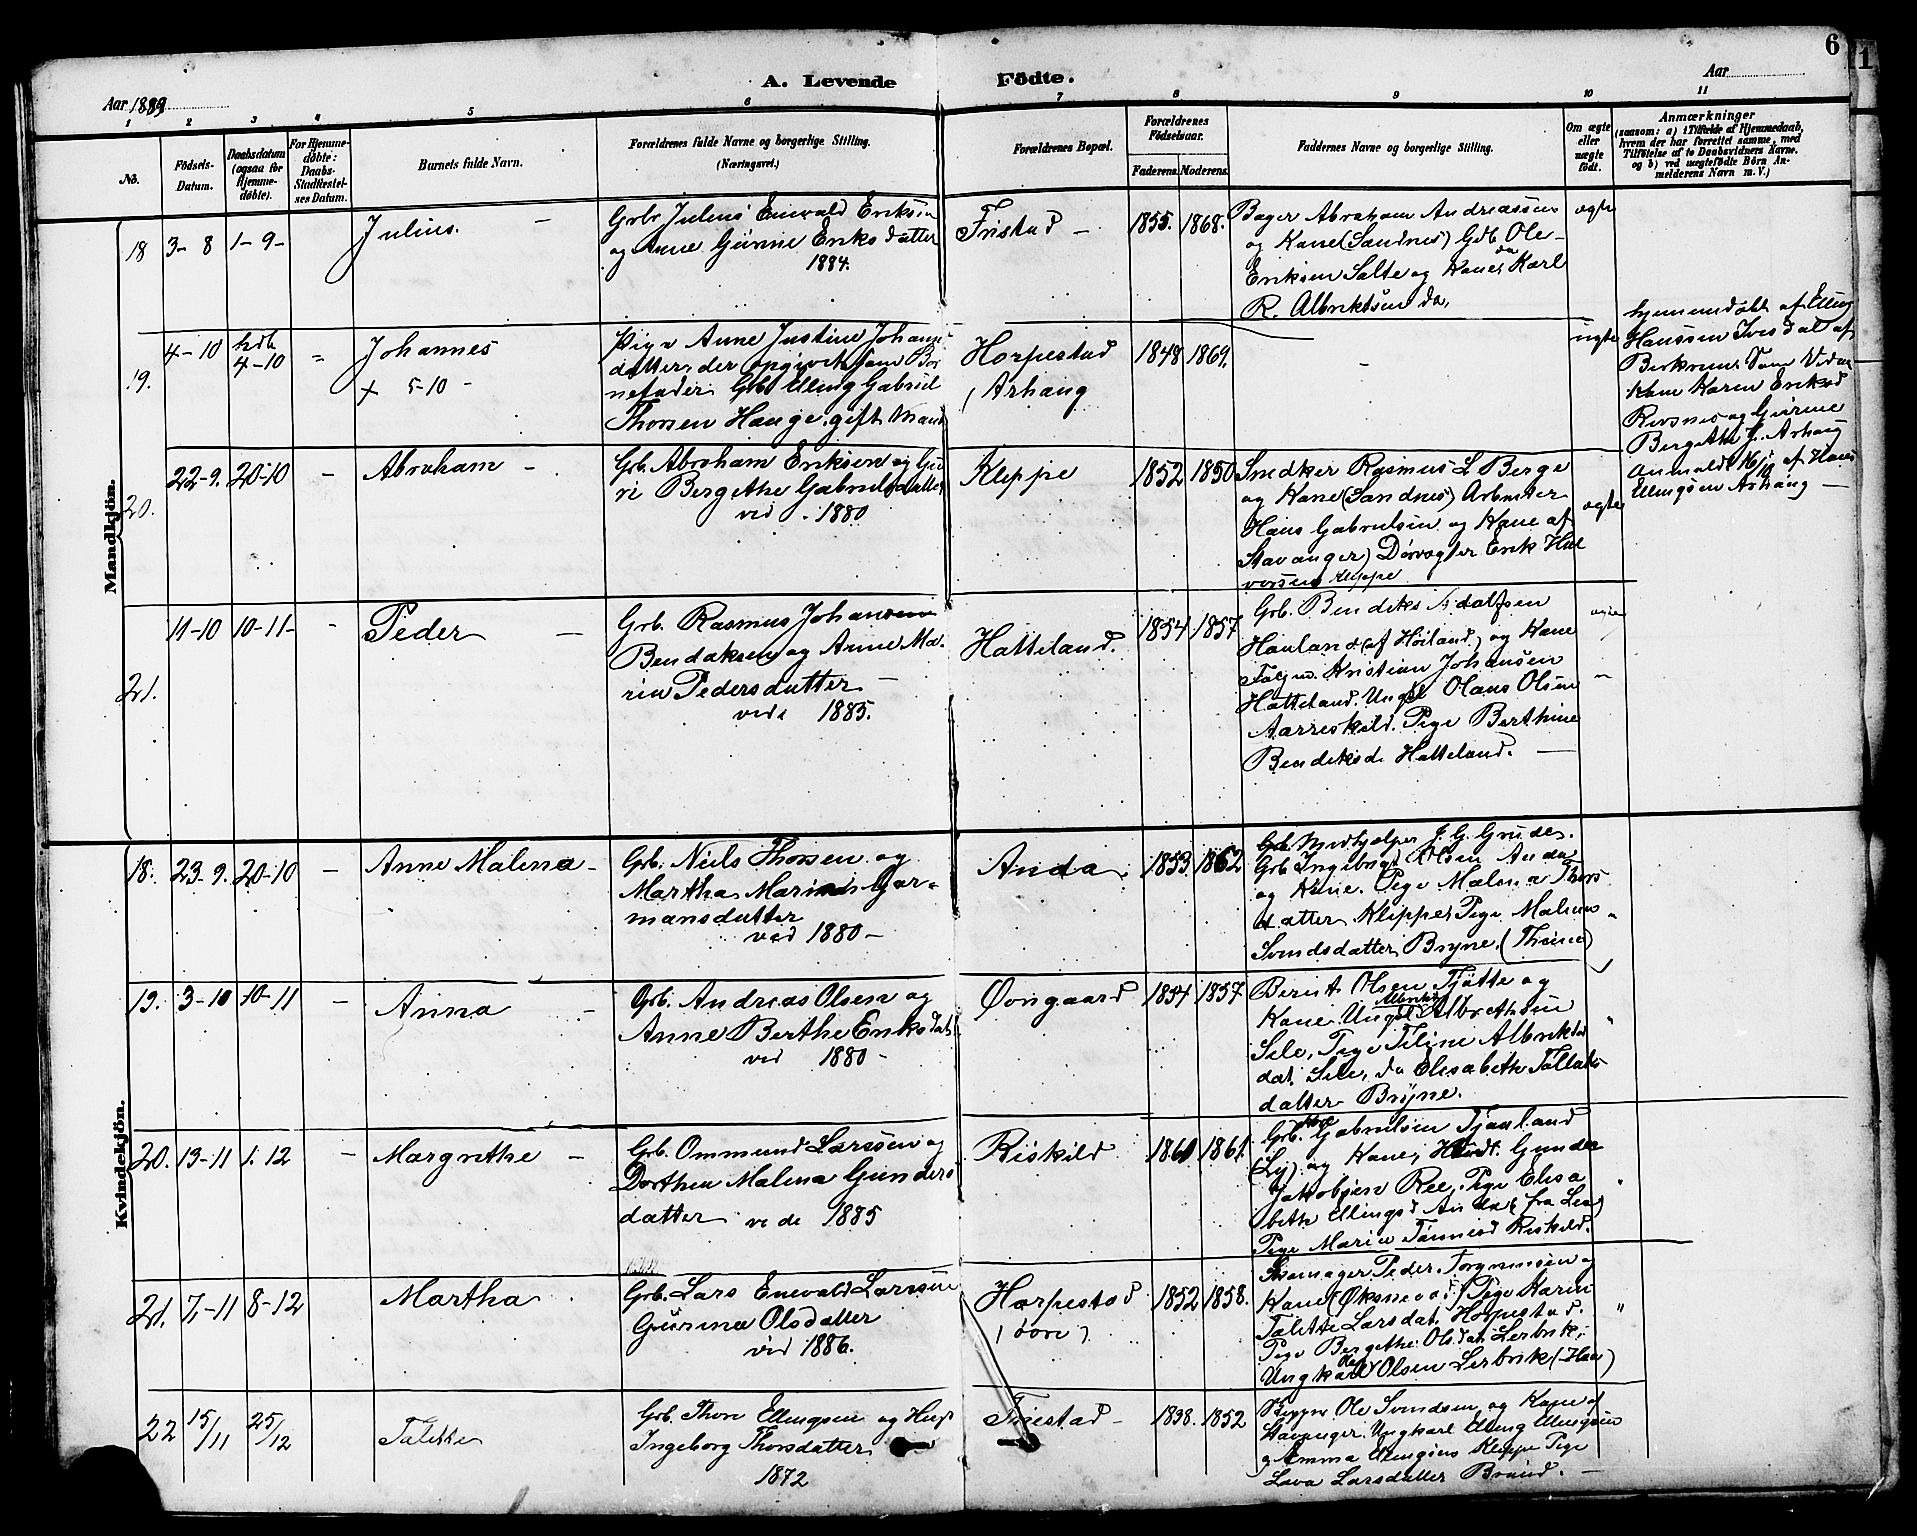 6
A. Levende Födte.
Aar 1889
Aar
1 2 3 4 5 6 7 8 9 10 11
No.
Födsels-Datum.
Daabsdatum (ogsaa for Hjemme-døbte).
For Hjemme-døbte: Daabs-Stadfæstelses Datum.
Barnets fulde Navn.
Forældrenes fulde Navne og borgerlige Stilling.
(Næringsvei.)
Forældrenes Bopæl.
Forældrenes Födselsaar.
Faderens. Moderens.
Faddernes Navne og borgerlige Stilling.
Om ægte eller uægte födt.
Anmærkninger
(saasom: a) i Tilfælde af Hjemmedaab,
hvem der har forrettet samme, med
Tilföielse af to Daabsvidners Navne.
og b) ved uægtefödte Börn An-
melderens Navn m. V.)
Mandkjön.
18 3-8 1-9- Julius. -
Grbr Julius Enevald Eriksen
og Anne Gurine Eriksdatter
1884.
Fristad - 1855. 1868.
Bager Abraham Andreassen
og Kone (Sandnes) Gdb Ole
Eriksen Salte og Kone, Karl
R. Albriktsen da.
ægte
19. 4-10 hdb 4-10 " Johannes
+ 5-10 -
Pige Anne Justine Johans
datter, der opgivet som Bar
nefader Grb. Elling Gabriel
Thorsen Hauge, gift Mand
Horpestad
(Arhaug
1848 1869.
uægte
hjemmedøbt af Elling
Hanssen Ivesdal af
Birkrem. Vidner
Kone Karen Eriksd
Revsnes og Gurine
Bergethe J. Arhaug
Anmeldt 16/10 af Hans
Ellingsen Arhaug -
20. 22-9. 20-10 - Abraham -
Grb. Abraham Eriksen og Gu
ri Bergethe Gabrielsdatter
vid . 1880
Kleppe 1852 1850
Snedker Rasmus L Berge
og Kone (Sandnes) Arbeider
Hans Gabrielsen og Kone af
Stavanger) Dørvogter Erik Hal
vorsen Kleppe
ægte
21. 11-10 10-11- " Peder -
Grb. Rasmus Johansen
Bendiksen og Anne Ma-
rie Pedersdatter -
vids 1885.
Hatteland. 1854 1857
Grb. Bendiks Adolfsen
Hauland (af Høiland) og Kone
Kristian Johansen
Hatteland. Ungk. Olaus Olsen
Aarreskild. Pige Berthine
Bendiksd. Hatteland. -
ægte
Kvindekjön.
18. 23-9. 20-10 - Anne Malena -
Grb. Niels Thorsen og
Martha Marie Gar-
mansdatter
vid 1880-
Anda. 1853. 1862
Grb Medhjelper J. G. Grude.
Grb Ingebregt Olsen Anda
og Kone. Pige Malena Thors
datter Kleppe, Pige Malene
Svendsdatter Bryne, (Thime)
"
19. 3-10 10-11 - Anna -
Grb. Andreas Olsen og
Anne Berthe Eriksdat
vid 1880-
Øvngaard 1854 1857
Bernt Olsen Tjøtte og
Kone. Ungk. Albrethsen
Sele, Pige Teline Albrikts
dat. Sele, do Elisabeth Tallaks
datter Bryne.
"
20. 13-11 1. 12 - Margrethe -
Grb. Ommund Larssen og
Dorthea Malena Gunders
datter vide 1885
Riskild 1860 1861.
Grb. Gabrielsen Tjaaland
(Ly) og Kone, Gunder
Jakobsen Ree, Pige Elisa
beth Ellingsd Anda (fra Lea)
Pige Marie Tønnesd Riskild.
"
21. 7-11 8-12 Martha
Grb. Lars Enevald Larssen
Gurine Olsdatter
vid 1886.
Horpestad
(øvre)
1852 1858.
Skomager Peder Torgrimsen og
Kone (Øksnevad) Pige Karen
Talette Larsdat. Horpestad.
Pige Bergithe Olsdat Lerbrek,
Ungkarl Olsen Lerbrek (Haa)
"
22 15/11 25/12 Talette
Grb. Thore Ellingsen og Hust
Ingeborg Thorsdatter
1872
Friestad - 1838. 1852
Ole Svendsen og Kone af
Stavanger. Ungkarl Elling Ellingsen
og Emma Ellingsens Kleppe Pige
Lava Larsdatter Braud. -